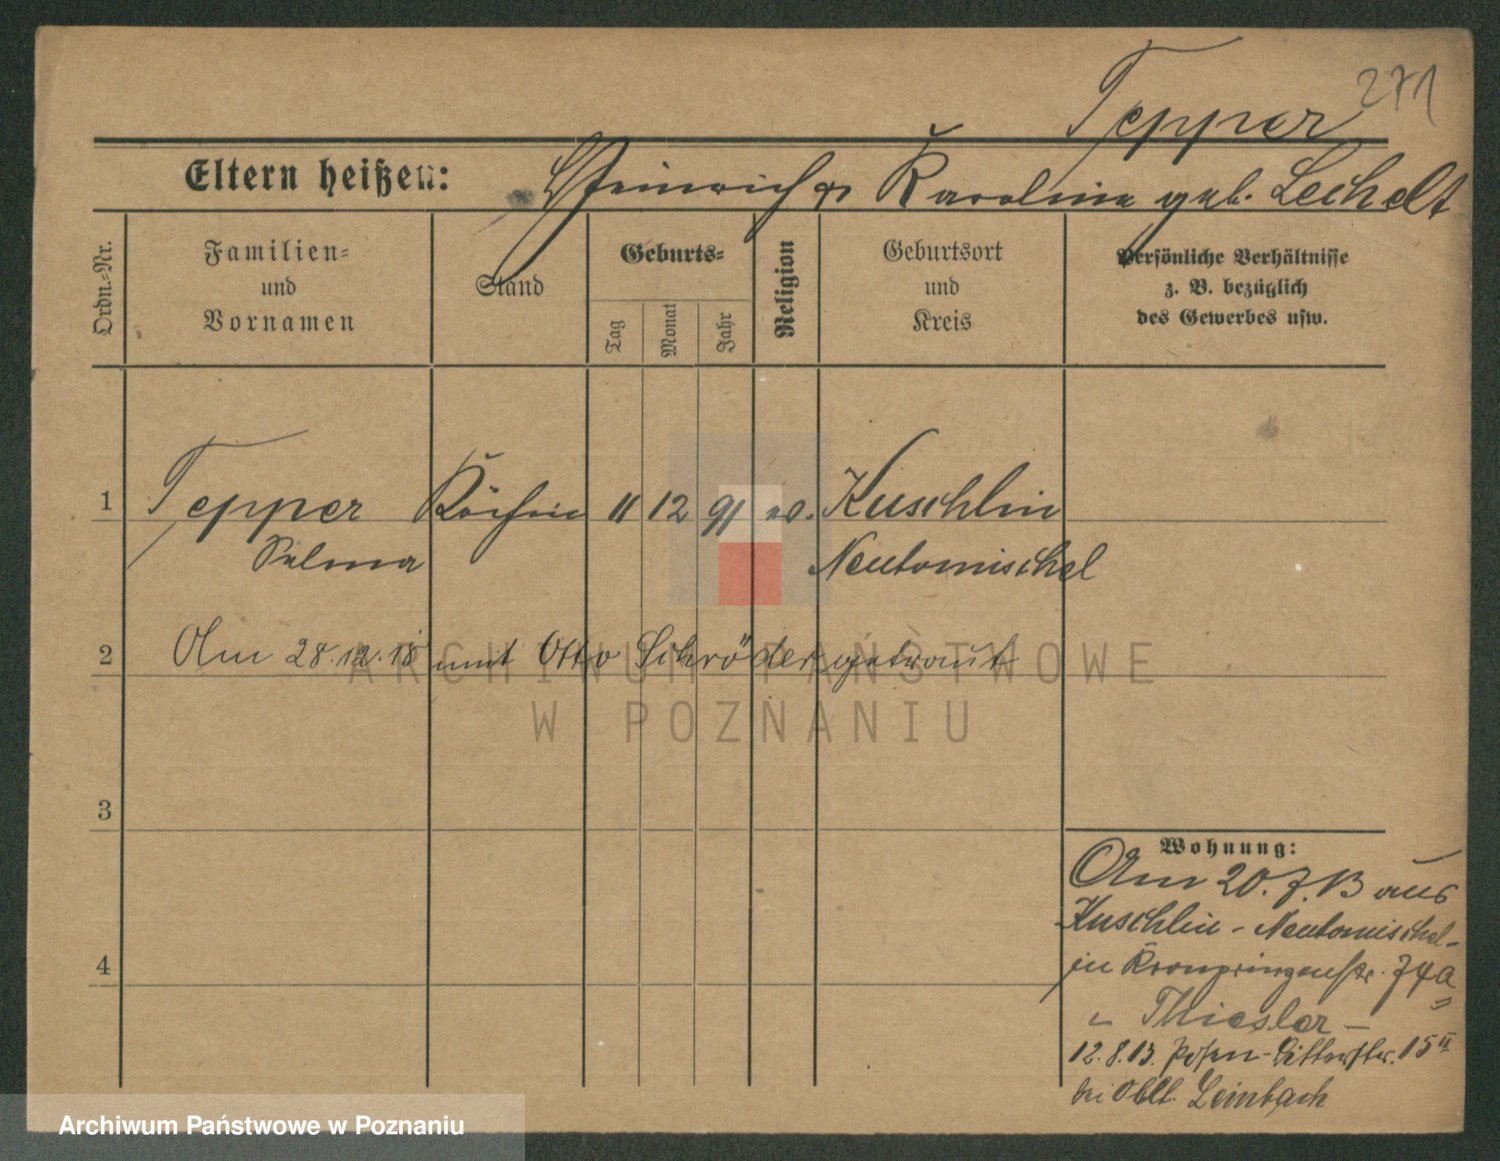 271
Tepper
Eltern heißen: Heinrich u. Karoline geb. Lechelt
Ordn.-Nr.
Familien-
und
Vornamen
Stand
Geburts-
Tag
Monat
Jahr
Religion
Geburtsort
und
Kreis
Persönliche Verhältnisse
z. B. bezüglich
des Gewerbes usw.
1 Tepper Köchin 11 12 91 ev. Kuschlin
Selma Neutomischel
2 Am 28.12.18 mit Otto Schröder getraut
3
4
Wohnung:
Am 20.7.13 aus
Kuschlin - Neutomischel -
in Kronprinzenstr. 74a
Thiesler -
12.8.13. Posen - Ritterstr. 15 II
bei Oblt. Leimbach
ARCHIWUM PAŃSTWOWE
W POZNANIU
Archiwum Państwowe w Poznaniu